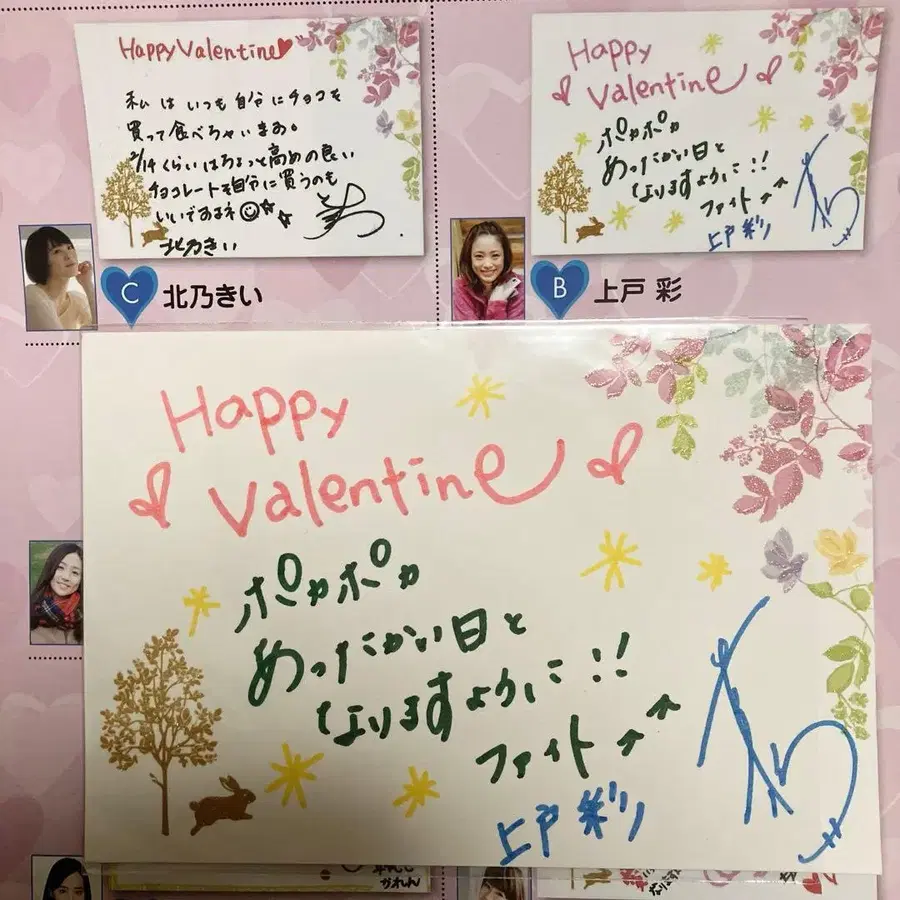 Happy Valentine
私はいつも自分にチョコを
買って食べちゃいます。
2/14くらいはちょっと高めの良い
チョコレートを自分に買うのも
いいですよネ
北乃きい
C 北乃きい
Happy
Valentine
ポカポカ
あったかい日と
なりますように!!
ファイト↗↗
上戸彩
B 上戸 彩
Happy
Valentine
ポカポカ
あったかい日と
なりますように!!
ファイト↗↗
上戸彩
かれん